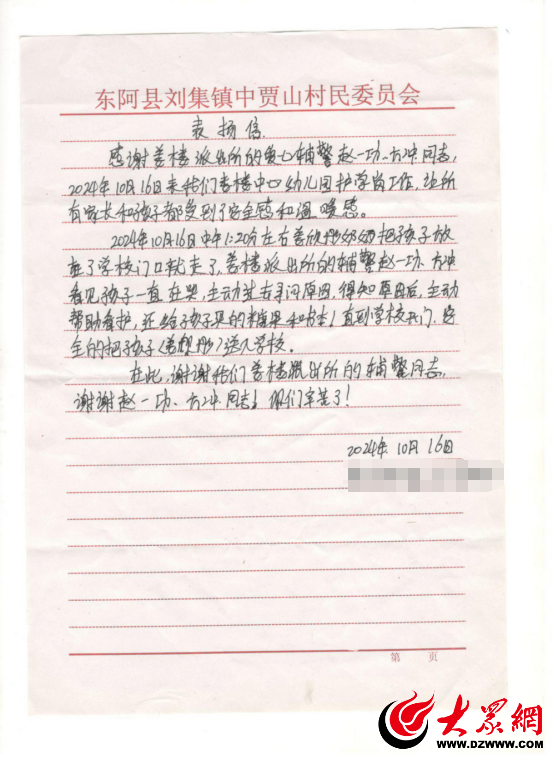 东阿县刘集镇中贾山村民委员会
表扬信
感谢姜楼派出所的爱心辅警赵一功、方冲同志,
2024年10月16日来我们姜楼中心幼儿园护学岗工作,让所
有家长和孩子都受到了安全感和温暖感。
2024年10月16日中午1:20分左右姜欣彤奶奶把孩子放
在了学校门口就走了,姜楼派出所的辅警赵一功、方冲
看见孩子一直在哭,主动过去寻问原因,得知原因后,主动
帮助看护,还给孩子买的糖果和 直到学校开门,安
全的把孩子(姜欣彤)送入学校。
在此,谢谢我们姜楼派出所的辅警同志,
谢谢赵一功、方冲同志!你们辛苦了!
2024年10月16日
第 页
大众網
WWW.DZWWW.COM